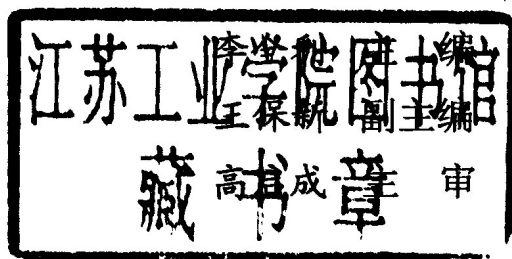 江苏工业学院图书馆
藏书章
李 主 编
王保 副主编
高 成 主 审